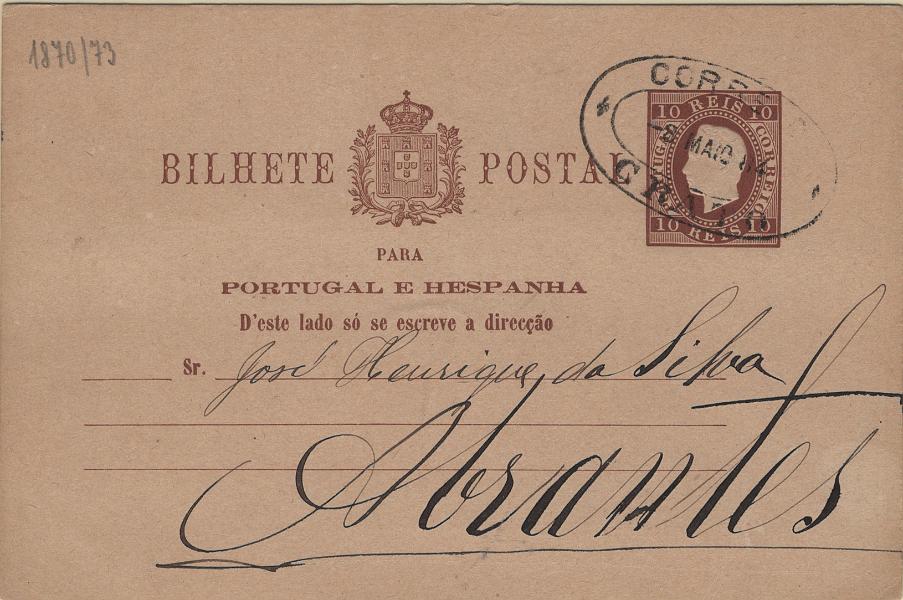 1870/73
CORREIO
8 MAIO 84
CRATO
10 REIS 10
PORTUGAL
CORREIO
10 REIS 10
BILHETE POSTAL
PARA
PORTUGAL E HESPANHA
D'este lado só se escreve a direcção
Sr. José Henrique da Silva
Abrantes